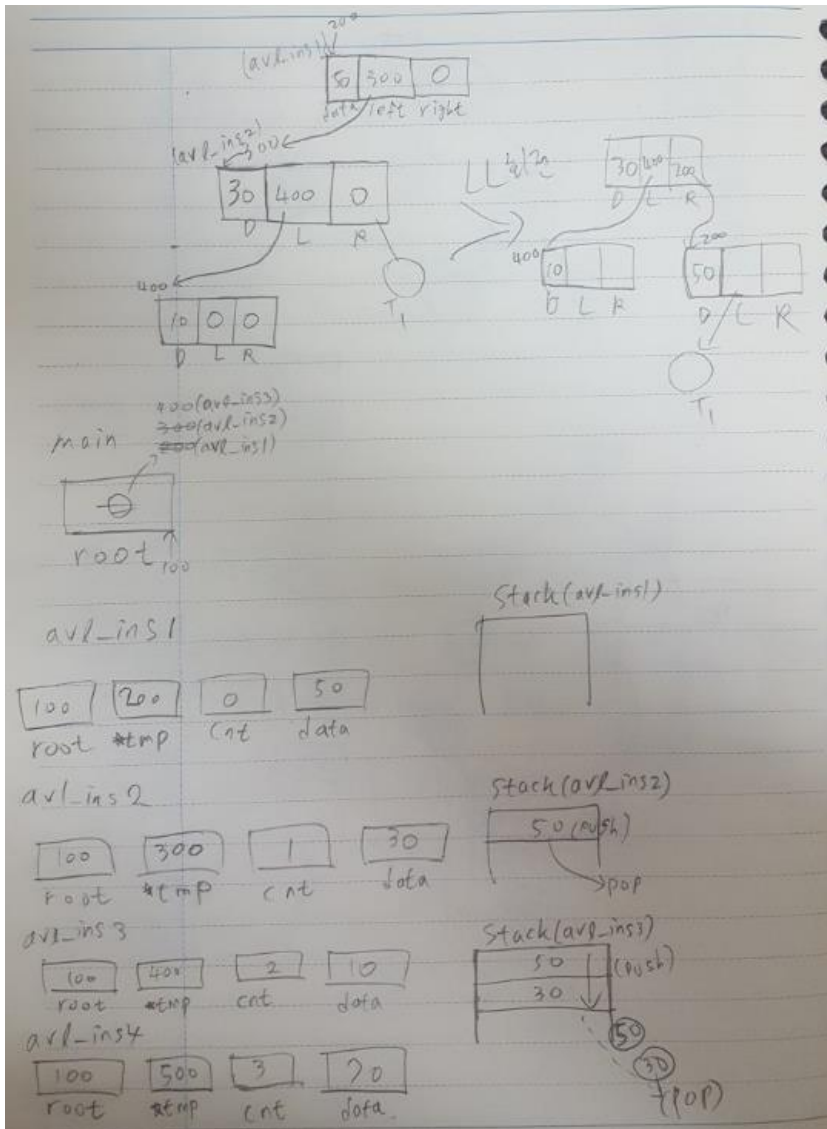 200
(avl_ins1)
50 300 0
data left right
(avl_ins2)
300
30 400 0
D L R
T1
400
10 0 0
D L R
30 400 200
D L R
400
10
D L R
200
50
D L R
T1
main
400(avl_ins3)
300(avl_ins2)
200(avl_ins1)
root 100
avl_ins1
100 200 0 50
root *tmp cnt data
Stack(avl_ins1)
avl_ins2
100 300 1 30
root *tmp cnt data
Stack(avl_ins2)
50(push)
pop
avl_ins3
100 400 2 10
root *tmp cnt data
Stack(avl_ins3)
50
30
(push)
50
30
(pop)
avl_ins4
100 500 3
root *tmp cnt data